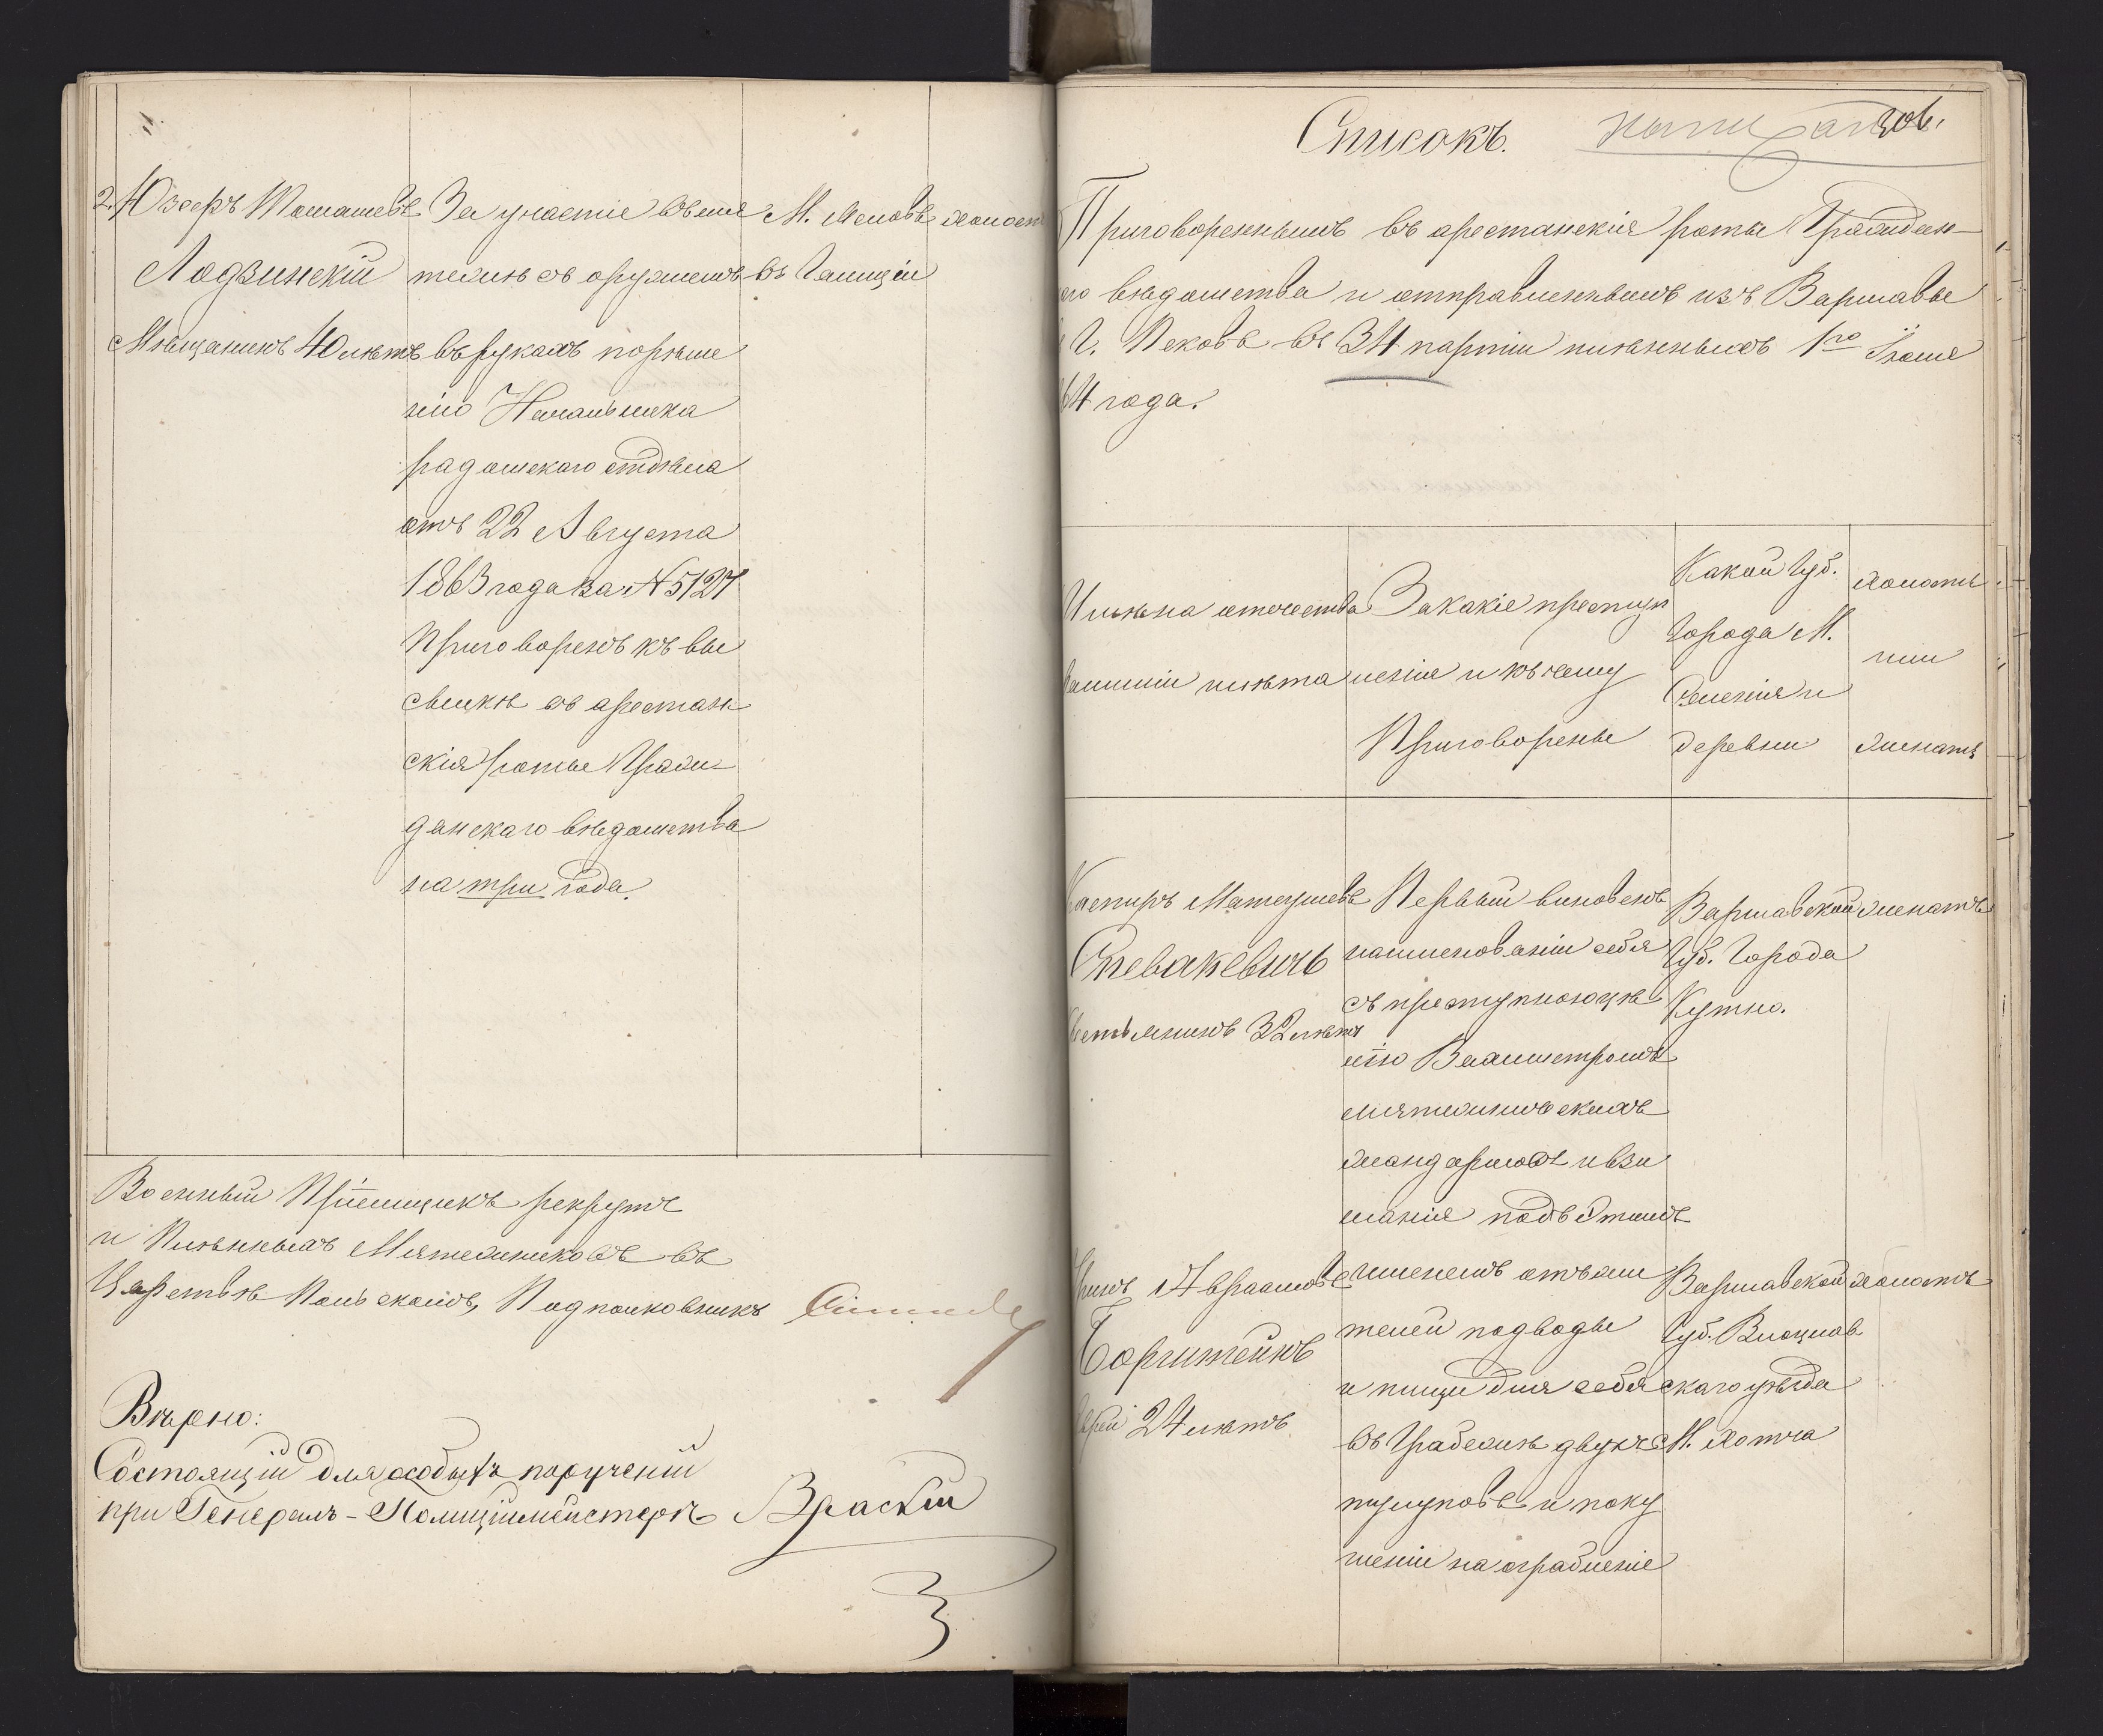 2. Юзефъ Томашевъ
Лодзинскій
Мѣщанинъ 40 лѣтъ
За участіе въ мя
тежѣ съ оружіемъ
въ рукахъ по рѣше
нію Начальника
радомскаго отдѣла
отъ 22 Августа
1863 года за № 5127
Приговоренъ къ вы
сылкѣ въ арестан
скія роты Граж
данскаго вѣдомства
на три года.
М.
въ Галиціи
холост
Военный Пріемщикъ рекрутъ
и Плѣнныхъ Мятежниковъ въ
Царствѣ Польскомъ, Подполковникъ
Вѣрно:
Состоящій для особыхъ порученій
при Генералъ-Полиціймейстерѣ Враскій
Списокъ.
Приговореннымъ въ арестанскія роты Граждан-
аго вѣдомства и отправленнымъ изъ Варшавы
Г. Псковъ въ 34 партіи плѣнныхъ 1го Іюня
64 года.
Имѣна отечества
фамиліи и лѣта
За какіе преступ
ленія и къ чему
Приговорены
Какой Губ.
Города М.
Селенія и
деревни
холостъ
или
женатъ
Каспиръ Матеушевъ
Спевакевичъ
32 лѣтъ
Первый виновенъ
наименованіи себя
съ преступною цѣ
лію Вахмистромъ
мятежническихъ
жандармовъ и взи
манія подъ этимъ
именемъ отъ жи
телей подводы
и пищи для себя
въ грабежѣ двухъ
тулуповъ и поку
шеніи на ограбленіе
Варшавской
Губ. Города
Кутно.
женатъ
Авраамовъ
Боргитейнъ
24 лѣтъ
Варшавской
Губ. Влоцлав
скаго уѣзда
М.
холостъ